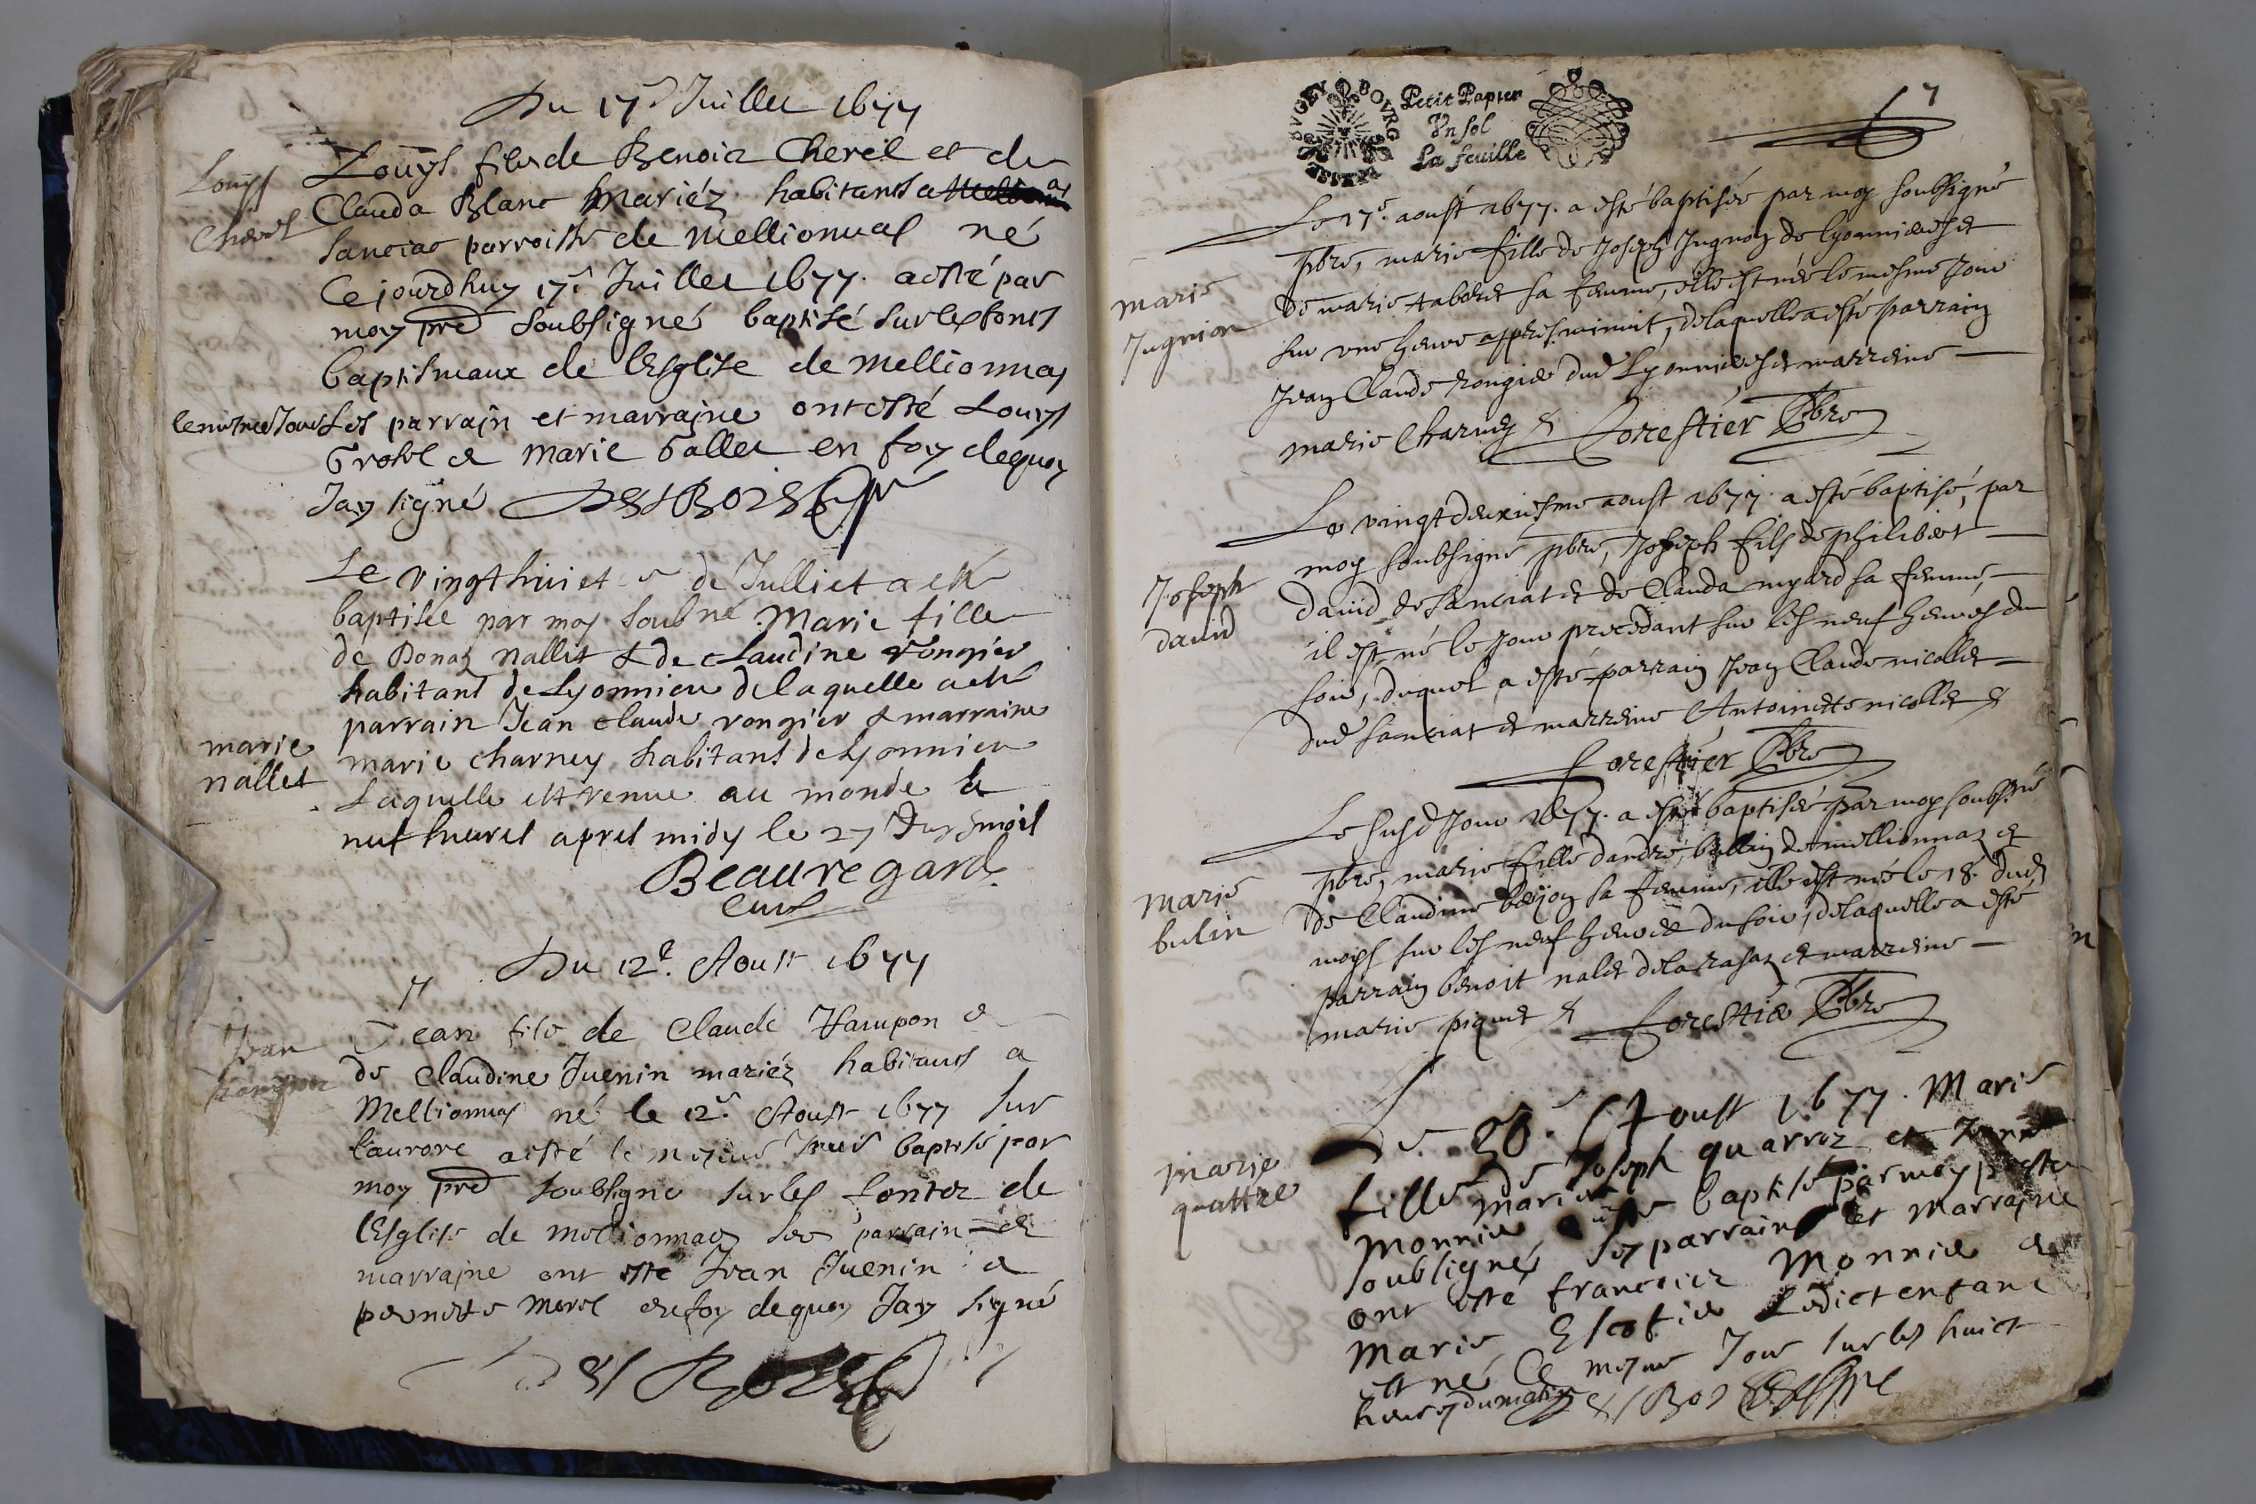 Du 17e Juillet 1677
Louys
Cherel
Louys fils de Benoit Cherel et de
Clauda Blanc Mariéz habitants a
Sanciat parroisse de Mellionnas né
Cejourdhuy 17e Juillet 1677. a esté par
moy pre soubsigné baptisé sur les fonts
baptismaux de lEsglise de Mellionnas
le mesme Jour Ses parrain et marraine ont esté Louys
Grobel et Marie Gallet en foy dequoy
Jay signé
Le vingthuict e de Julliet a esté
baptisée par moy soubné Marie fille
de Donat Nallet & de Claudine Rongier
habitans de Lyonnieu de laquelle a esté
parrain Jean Claude rongier & marraine
marie
nallet
marie charney habitans de Lyonnieu
Laquelle est venue au monde a
neuf heures apres midy le 27 Du mois
Beauregard
curé
Du 12e. Aoust 1677
Jean
Jean fils de Claude Hampon et
de Claudine Juenin mariéz habitants a
Mellionnas né le 12e. Aoust 1677 sur
l'aurore a esté le mesme Jour baptisé par
moy pre soubsigné sur les fontz de
lEsglise de Mellionnas Ses parrain et
marraine ont esté Jean Juenin et
pernette Morel en foy dequoy Jay signé
BUGEY BOURG BRESSE
Petit Papier
Vn sol
La feuille
7
Le 17e. aoust 1677. a esté baptisée par moy soubsigné
marie
Jugnion
pbre, marie fille de Joseph Jugnon de lyonnieres et
de marie taberet sa femme, elle est née le mesme Jour
sur une heure appres minuit, de laquelle a esté parrain
Jean Claude rongier dud Lyonnieres et marreine
marie Charney & Forestier Pbre
Le vingtdeuxiesme aoust 1677. a esté baptisé, par
Joseph
david
moy soubsigné pbre, Joseph fils de philibert
david de sanciat et de Clauda myard sa femme,
il est né le Jour precedant sur les neuf heures du
soir, duquel a esté parrain Jean Claude nicollet
dud sanciat et marreine Antoinette nicollet &
Forestier Pbre
Le susd Jour 1677. a esté baptisée par moy soubsné
marie
bulin
pbre, marie fille dandré bullin de mellionnaz et
de Claudine bejon sa femme, elle est née le 18e. dud
moys sur les neuf heures du soir, de laquelle a esté
parrain benoit nalet de la rasaz et marreine
marie piquet & Forestier Pbre
Le 28e. Aoust 1677. Marie
marie
quattre
fille de Joseph quarroz et Jeanne
Monnier mariés a esté baptisé par moy prestre
soubsigné Ses parrain et Marraine
ont esté francois Monnier et
Marie Ledict enfant
est né le mesme Jour sur les huict
heures du matin